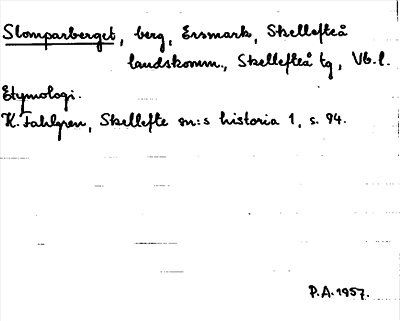 Slomparberget, berg, Ersmark, Skellefteå
landskomm., Skellefteå tg, Vb.l.
Etymologi.
K. Fahlgren, Skellefte sn:s historia 1, s. 94.
P.A. 1957.